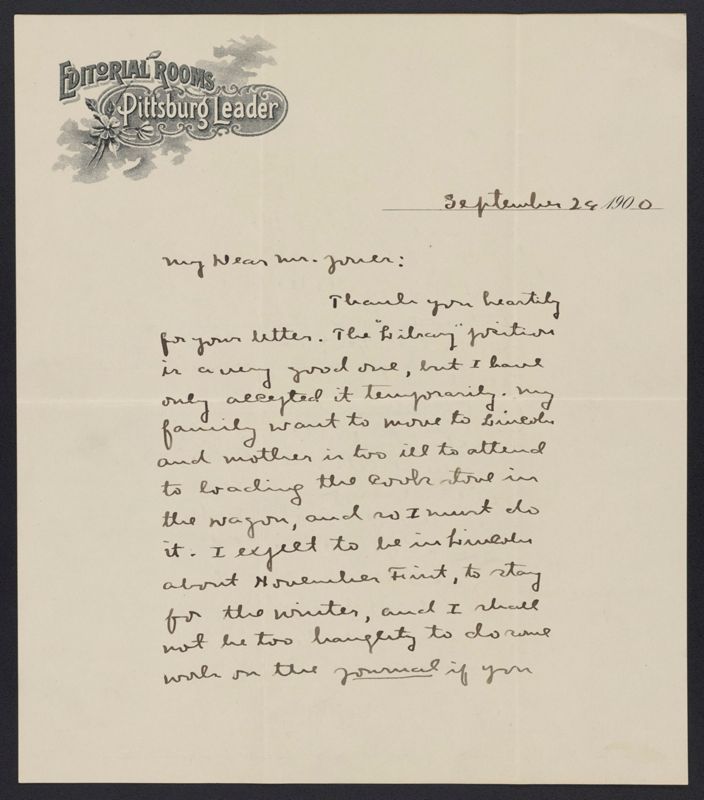 EDITORIAL ROOMS
Pittsburg Leader
September 28 1900
My Dear Mr. Jones:
Thank you heartily
for your letter. The "Library" position
is a very good one, but I have
only accepted it temporarily. My
family want to move to Lincoln
and mother is too ill to attend
to loading the cook stove in
the wagon, and so I must do
it. I expect to be in Lincoln
about November First, to stay
for the winter, and I shall
not be too haughty to do some
work on the Journal if you